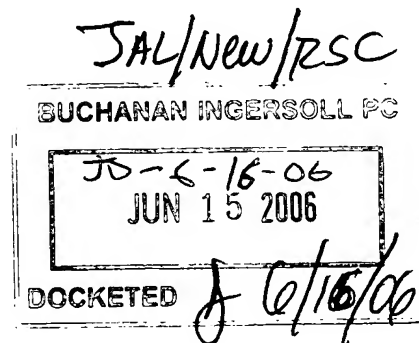 JAL/New/RSC
BUCHANAN INGERSOLL PC
JD-6-16-06
JUN 15 2006
DOCKETED 6/16/06